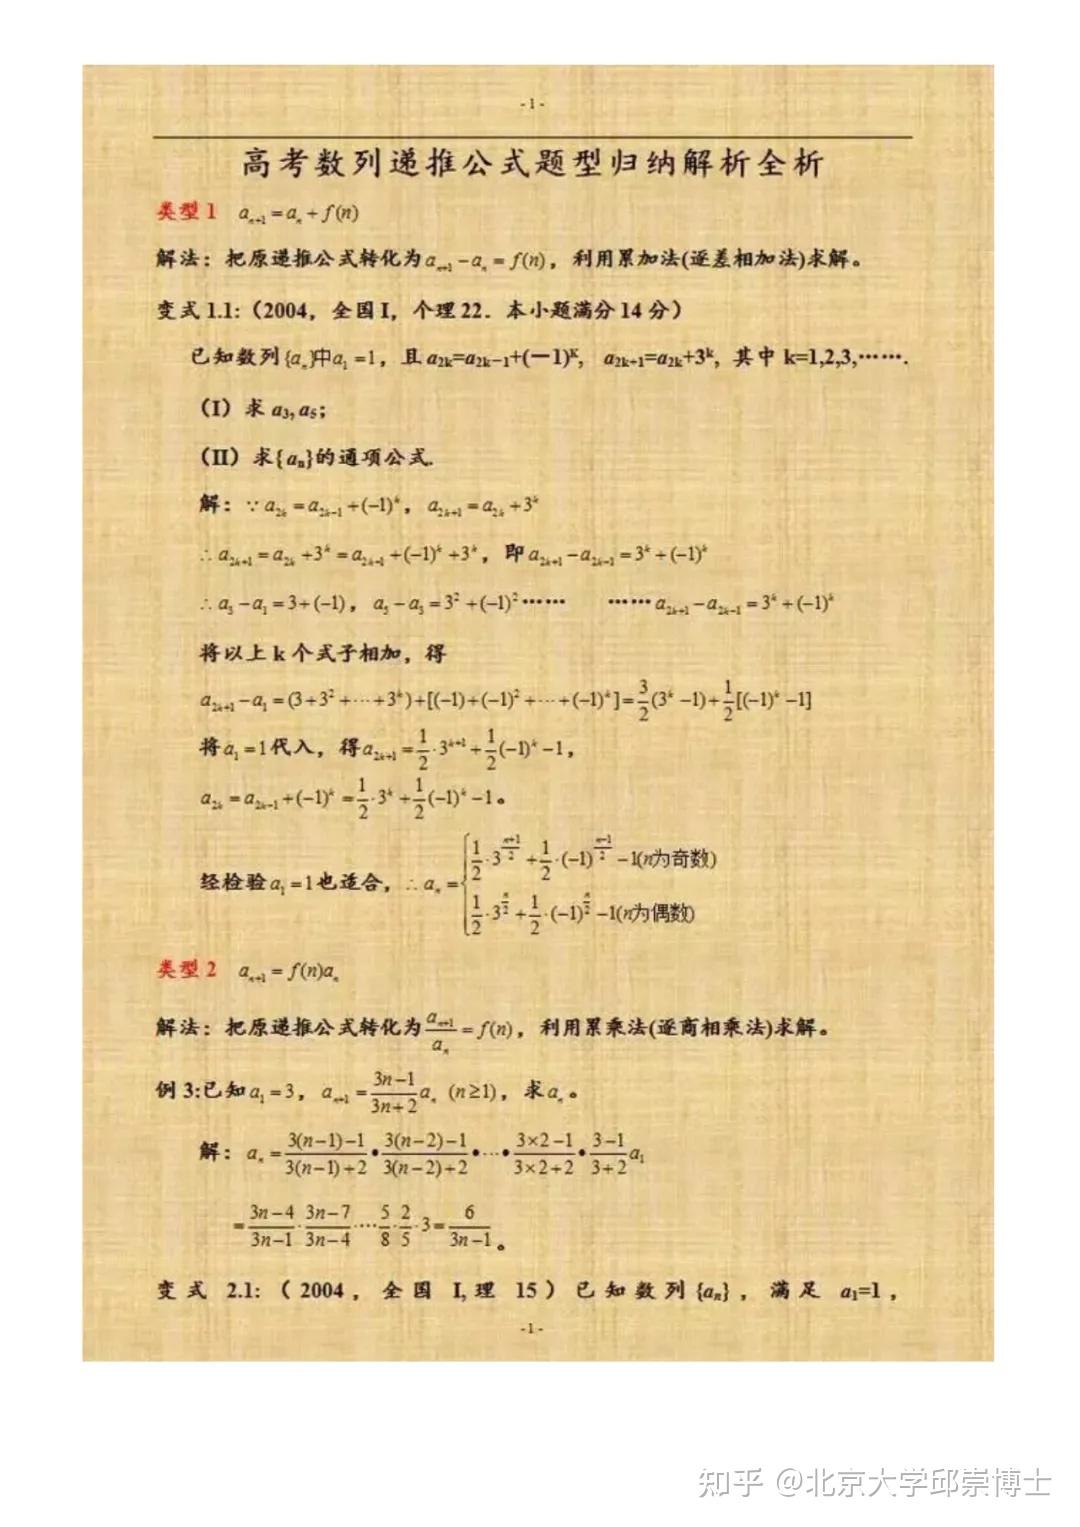 - 1 -
高考数列递推公式题型归纳解析全析
类型 1 a_{n+1} = a_n + f(n)
解法：把原递推公式转化为 a_{n+1} - a_n = f(n)，利用累加法(逐差相加法)求解。
变式 1.1:（2004，全国 I，个理 22．本小题满分 14 分）
已知数列{a_n}中a_1 = 1，且 a_{2k}=a_{2k-1}+(－1)^K, a_{2k+1}=a_{2k}+3^k, 其中 k=1,2,3,…….
（I）求 a_3, a_5；
（II）求{ a_n}的通项公式.
解：∵ a_{2k} = a_{2k-1} + (-1)^k， a_{2k+1} = a_{2k} + 3^k
∴ a_{2k+1} = a_{2k} + 3^k = a_{2k-1} + (-1)^k + 3^k，即 a_{2k+1} - a_{2k-1} = 3^k + (-1)^k
∴ a_3 - a_1 = 3 + (-1)， a_5 - a_3 = 3^2 + (-1)^2 …… …… a_{2k+1} - a_{2k-1} = 3^k + (-1)^k
将以上 k 个式子相加，得
a_{2k+1} - a_1 = (3 + 3^2 + ⋯ + 3^k) + [(-1) + (-1)^2 + ⋯ + (-1)^k] = \frac{3}{2}(3^k - 1) + \frac{1}{2}[(-1)^k - 1]
将 a_1 = 1 代入，得 a_{2k+1} = \frac{1}{2}·3^{k+1} + \frac{1}{2}(-1)^k - 1，
a_{2k} = a_{2k-1} + (-1)^k = \frac{1}{2}·3^k + \frac{1}{2}(-1)^k - 1。
经检验 a_1 = 1 也适合，∴ a_n = { \frac{1}{2}·3^{\frac{n+1}{2}} + \frac{1}{2}·(-1)^{\frac{n-1}{2}} - 1(n为奇数)
\frac{1}{2}·3^{\frac{n}{2}} + \frac{1}{2}·(-1)^{\frac{n}{2}} - 1(n为偶数)
类型 2 a_{n+1} = f(n)a_n
解法：把原递推公式转化为 \frac{a_{n+1}}{a_n} = f(n)，利用累乘法(逐商相乘法)求解。
例 3:已知 a_1 = 3， a_{n+1} = \frac{3n-1}{3n+2} a_n (n ≥ 1)，求 a_n。
解：a_n = \frac{3(n-1)-1}{3(n-1)+2} • \frac{3(n-2)-1}{3(n-2)+2} • ⋯ • \frac{3×2-1}{3×2+2} • \frac{3-1}{3+2} a_1
= \frac{3n-4}{3n-1} · \frac{3n-7}{3n-4} ⋯ \frac{5}{8} · \frac{2}{5} · 3 = \frac{6}{3n-1}。
变式 2.1:（2004，全国 I,理 15）已知数列{a_n}，满足 a_1=1，
- 1 -
知乎 @北京大学邱崇博士